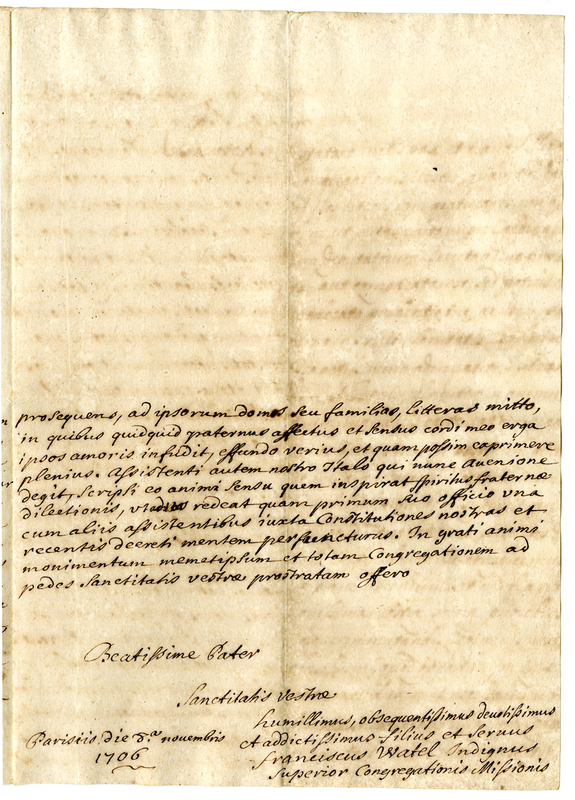 prosequens, ad ipsorum domos seu familias, litteras mitto,
in quibus quidquid paternus affectus et sensus cordi meo erga
ipsos amoris infudit, effundo verius, et quam possim exprimere
plenius. Assistenti autem nostro Italo qui nunc Avenione
degit, scripsi eo animi sensu quem inspirat spiritus fraternæ
dilectionis, redeat quam primum suo officio una
cum aliis assistentibus iuxta Constitutiones nostras et
recentis decreti mentem perfuncturus. In grati animi
monimentum memetipsum et totam Congregationem ad
pedes Sanctitatis vestræ prostratam offero
Beatissime Pater
Sanctitatis vestræ
humillimus, obsequentissimus devotissimus
et addictissimus filius et servus
Franciscus Watel Indignus
Superior Congregationis Missionis
Parisiis die 8.a novembris
1706